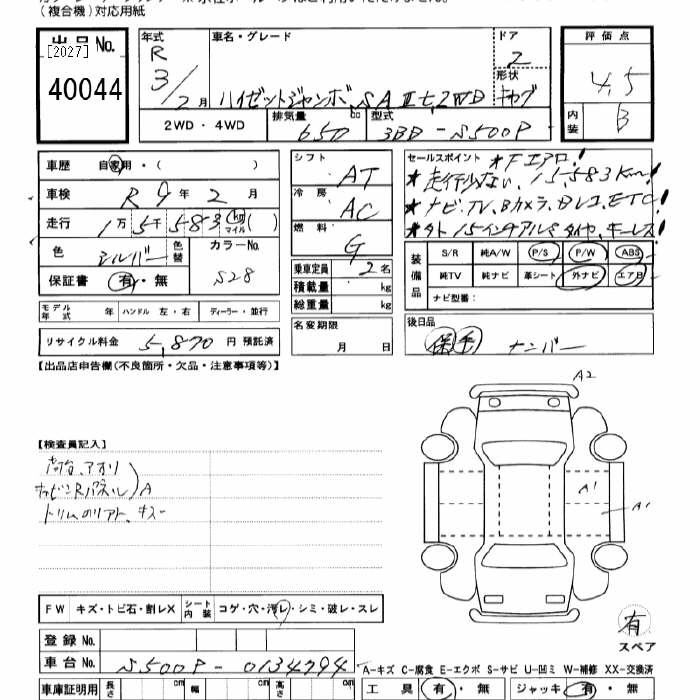 (複合機)対応用紙
出品No.
[2027]
40044
年式 R 3/2月
車名・グレード ハイゼットジャンボ SAⅢt 2WD
ドア 2
形状 キャブ
評価点 4.5
内装 B
2WD・4WD
排気量 650 cc
型式 3BD-S500P
車歴 自家用・( )
車検 R 9年 2月
走行 1万5千583 km マイル ( )
色 シルバー 色替 カラーNo. S28
保証書 有・無
モデル年式 年 ハンドル 左・右 ディーラー・並行
リサイクル料金 5,870円 預託済
シフト AT
冷房 AC
燃料 G
乗車定員 2名
積載量 kg
総重量 kg
名変期限 月 日
セールスポイント ★下エアロ!
★走行少ない、15,583Km!
★ナビ、TV、Bカメラ、ドレコ、ETC!
★外15インチアルミタイヤ、キーレス!
装備品 S/R 純A/W P/S P/W ABS
純TV 純ナビ 革シート 外ナビ エアB
ナビ型番:
後日品
保 ナンバー
【出品店申告欄(不良箇所・欠品・注意事項等)】
【検査員記入】
荷台、アオリ
キャビンRパネル)A
トリムのリアト、キズー
A2
A1
A1
FW キズ・トビ石・割レX シート内装 コゲ・穴・汚レ・シミ・破レ・スレ
登録No.
車台No. S500P-0134794
車庫証明用 長さ cm 幅 cm 高さ cm
有
スペア
A-キズ C-腐食 E-エクボ S-サビ U-凹ミ W-補修 XX-交換済
工具 有・無 ジャッキ 有・無